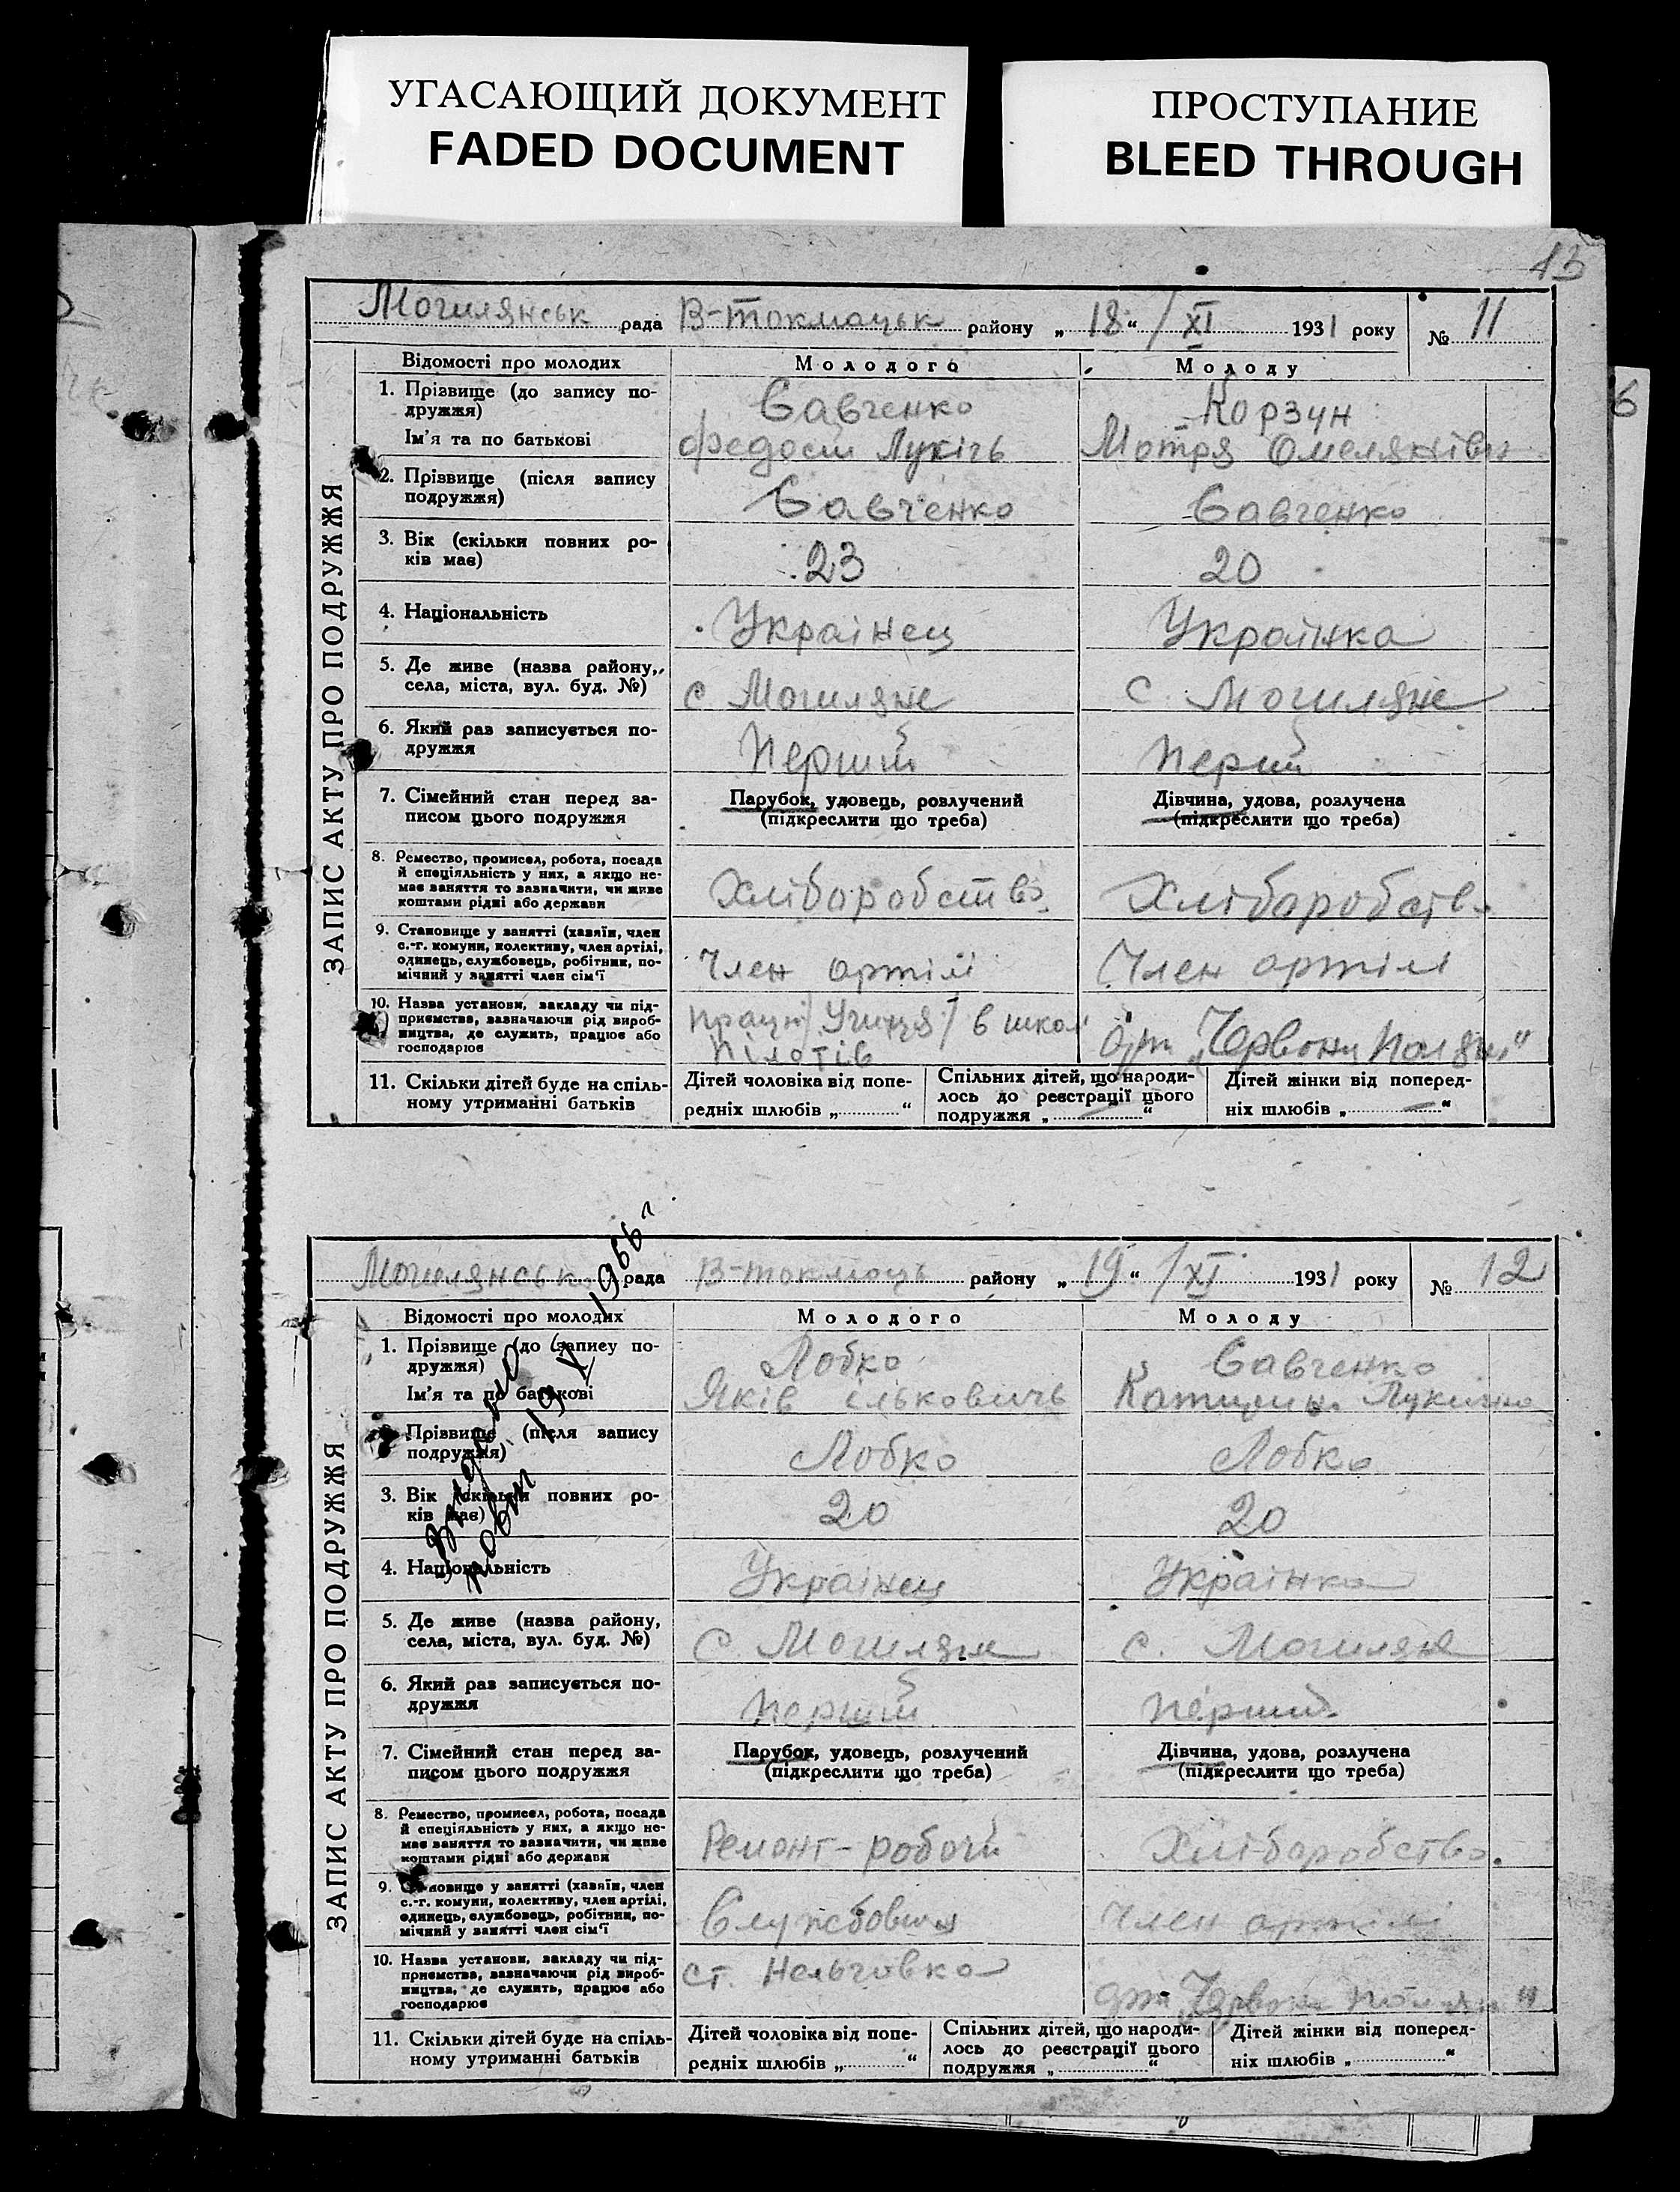 УГАСАЮЩИЙ ДОКУМЕНТ
FADED DOCUMENT
ПРОСТУПАНИЕ
BLEED THROUGH
13
6
ЗАПИС АКТУ ПРО ПОДРУЖЖЯ
Могилянськ рада В-Токмацьк району „ 18 “ / XI 1931 року № 11
Відомості про молодих Молодого Молоду
1. Прізвище (до запису по-
дружжя) Савченко Корзун
Ім'я та по батькові Федосій Лукічь Мотря Омелянівн
2. Прізвище (після запису
подружжя) Савченко Савченко
3. Вік (скільки повних ро-
ків має) 23 20
4. Національність Украінец Украінка
5. Де живе (назва району,
села, міста, вул. буд. №) с Могиляне с. Могиляне
6. Який раз записується по-
дружжя Перший Перший
7. Сімейний стан перед за- Парубок, удовець, розлучений Дівчина, удова, розлучена
писом цього подружжя (підкреслити що треба) (підкреслити що треба)
8. Ремество, промисел, робота, посада
й спеціяльність у них, а якщо не-
має заняття то зазначити, чи живе
коштами рідні або держави Хліборобство Хліборобств
9. Становище у занятті (хазяїн, член
с.-г. комуни, колективу, член артілі,
одинець, службовець, робітник, по-
мічний у занятті член сім'ї Член артілі Член артілі
10. Назва установи, закладу чи під-
приємства, зазначаючи рід вироб-
ництва, де служить, працює або
господарює в школ Пілотів „Червони Поляни“
11. Скільки дітей буде на спіль- Дітей чоловіка від попе- Спільних дітей, що народи- Дітей жінки від поперед-
ному утриманні батьків редніх шлюбів „ “ лось до реєстрації цього ніх шлюбів „ — “
подружжя „ — “
ЗАПИС АКТУ ПРО ПОДРУЖЖЯ
Могилянськ рада В-Токмаць району „ 19 “ / XI 1931 року № 12
Відомості про молодих Молодого Молоду
1. Прізвище (до запису по-
дружжя) Лобко Савченко
Ім'я та по батькові Яків ільковичь Катирина Лукична
2. Прізвище (після запису
подружжя) Лобко Лобко
3. Вік (скільки повних ро-
ків має) 20 20
4. Національність Украінец Украінка
5. Де живе (назва району,
села, міста, вул. буд. №) с. Могиляне с. Могиляне
6. Який раз записується по-
дружжя Перший Перший
7. Сімейний стан перед за- Парубок, удовець, розлучений Дівчина, удова, розлучена
писом цього подружжя (підкреслити що треба) (підкреслити що треба)
8. Ремество, промисел, робота, посада
й спеціяльність у них, а якщо не-
має заняття то зазначити, чи живе
коштами рідні або держави Ремонт-робочй Хліборобство.
9. Становище у занятті (хазяїн, член
с.-г. комуни, колективу, член артілі,
одинець, службовець, робітник, по-
мічний у занятті член сім'ї Член артілі
10. Назва установи, закладу чи під-
приємства, зазначаючи рід вироб-
ництва, де служить, працює або
господарює ст. Нельговка
11. Скільки дітей буде на спіль- Дітей чоловіка від попе- Спільних дітей, що народи- Дітей жінки від поперед-
ному утриманні батьків редніх шлюбів „ “ лось до реєстрації цього ніх шлюбів „ “
подружжя „ “
19 X 1966 г